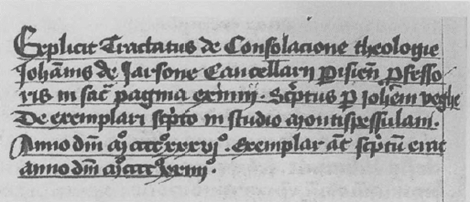 Explicit Tractatus de Consolacione theologie
Johānis de Jarsone Cancellarij Pisieñ ꝓfesso
ris in sac̄ pagina eximij. Sc̄ptus ꝑ Joħem veghe
De exemplari sc̄pto in studio montispessulani.
Anno dm̄ Mͦ ccccͦ xxxvjͦ. Exemplar at̄ sc̄ptum erat
anno dm̄ Mͦ ccccͦ